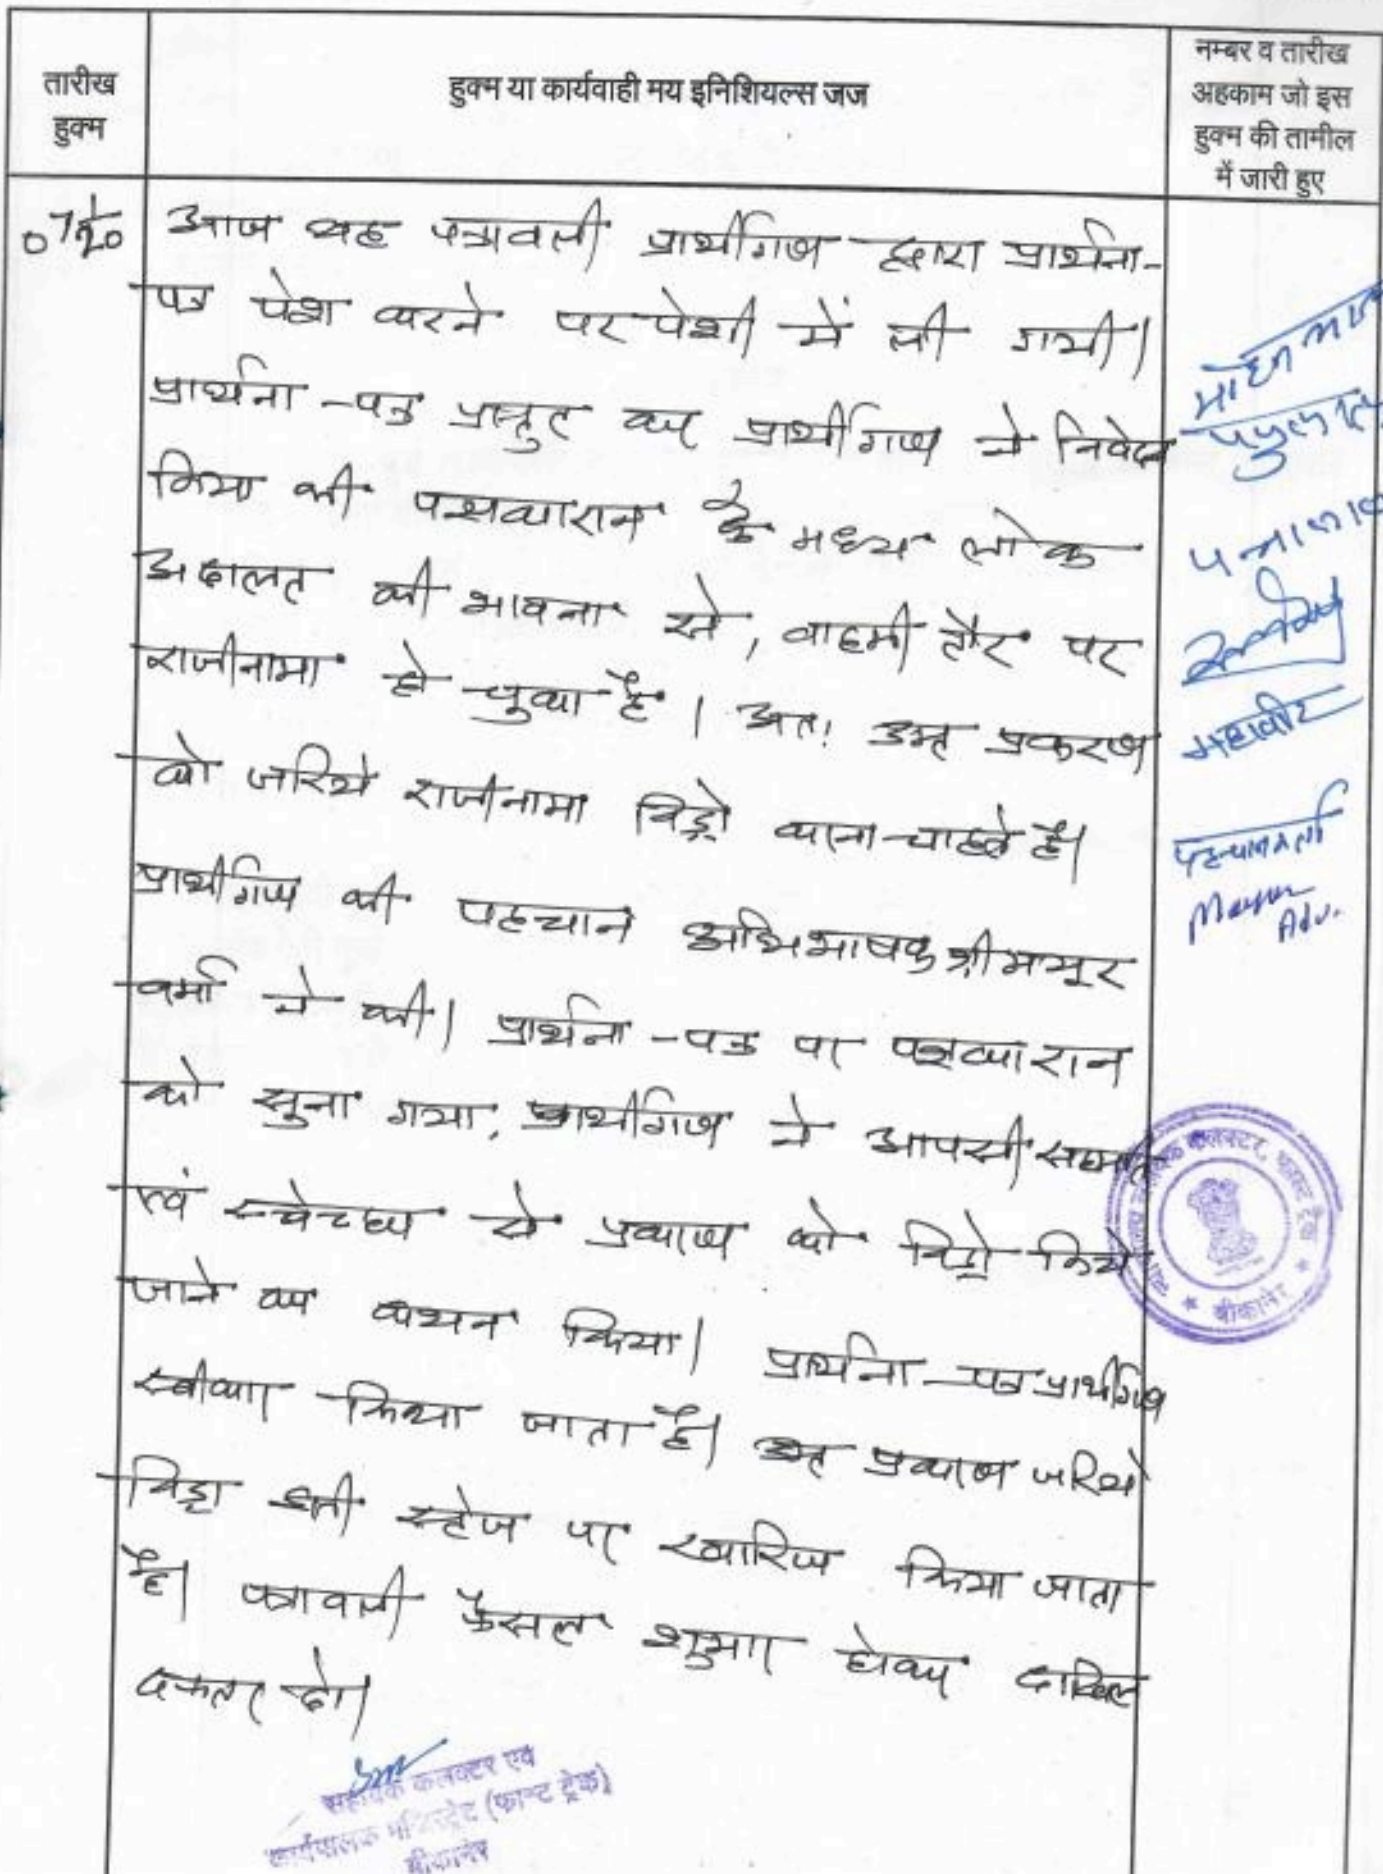 तारीख
हुक्म
हुक्म या कार्यवाही मय इनिशियल्स जज
नम्बर व तारीख
अहकाम जो इस
हुक्म की तामील
में जारी हुए
आज यह पत्रावली प्रार्थीगण द्वारा प्रार्थना-
पत्र पेश करने पर पेशी में ली गयी।
प्रार्थना-पत्र प्रस्तुत कर प्रार्थीगण ने निवेदन
किया की पक्षकारान के मध्य लोक
अदालत की भावना से, बाहमी तौर पर
राजीनामा हो चुका है। अतः उक्त प्रकरण
को जरिये राजीनामा विड्रो करना चाहते है।
प्रार्थीगण की पहचान अभिभाषक श्री मयूर
वर्मा ने की। प्रार्थना-पत्र पर पक्षकारान
को सुना गया, प्रार्थीगण ने आपसी सहमति
एवं स्वेच्छा से प्रकरण को विड्रो किये
जाने का कथन किया। प्रार्थना-पत्र प्रार्थीगण
स्वीकार किया जाता है। उक्त प्रकरण जरिये
विड्रा इसी स्टेज पर खारिज किया जाता
है। पत्रावली फैसल शुमार होकर दाखिल
दफ्तर हो।
पन्नालाल
महावीर
पहचानकर्ता
Mayur
Adv.
सहायक कलक्टर, फास्ट ट्रैक
बीकानेर
सहायक कलक्टर एवं
कार्यपालक मजिस्ट्रेट (फास्ट ट्रेक)
बीकानेर